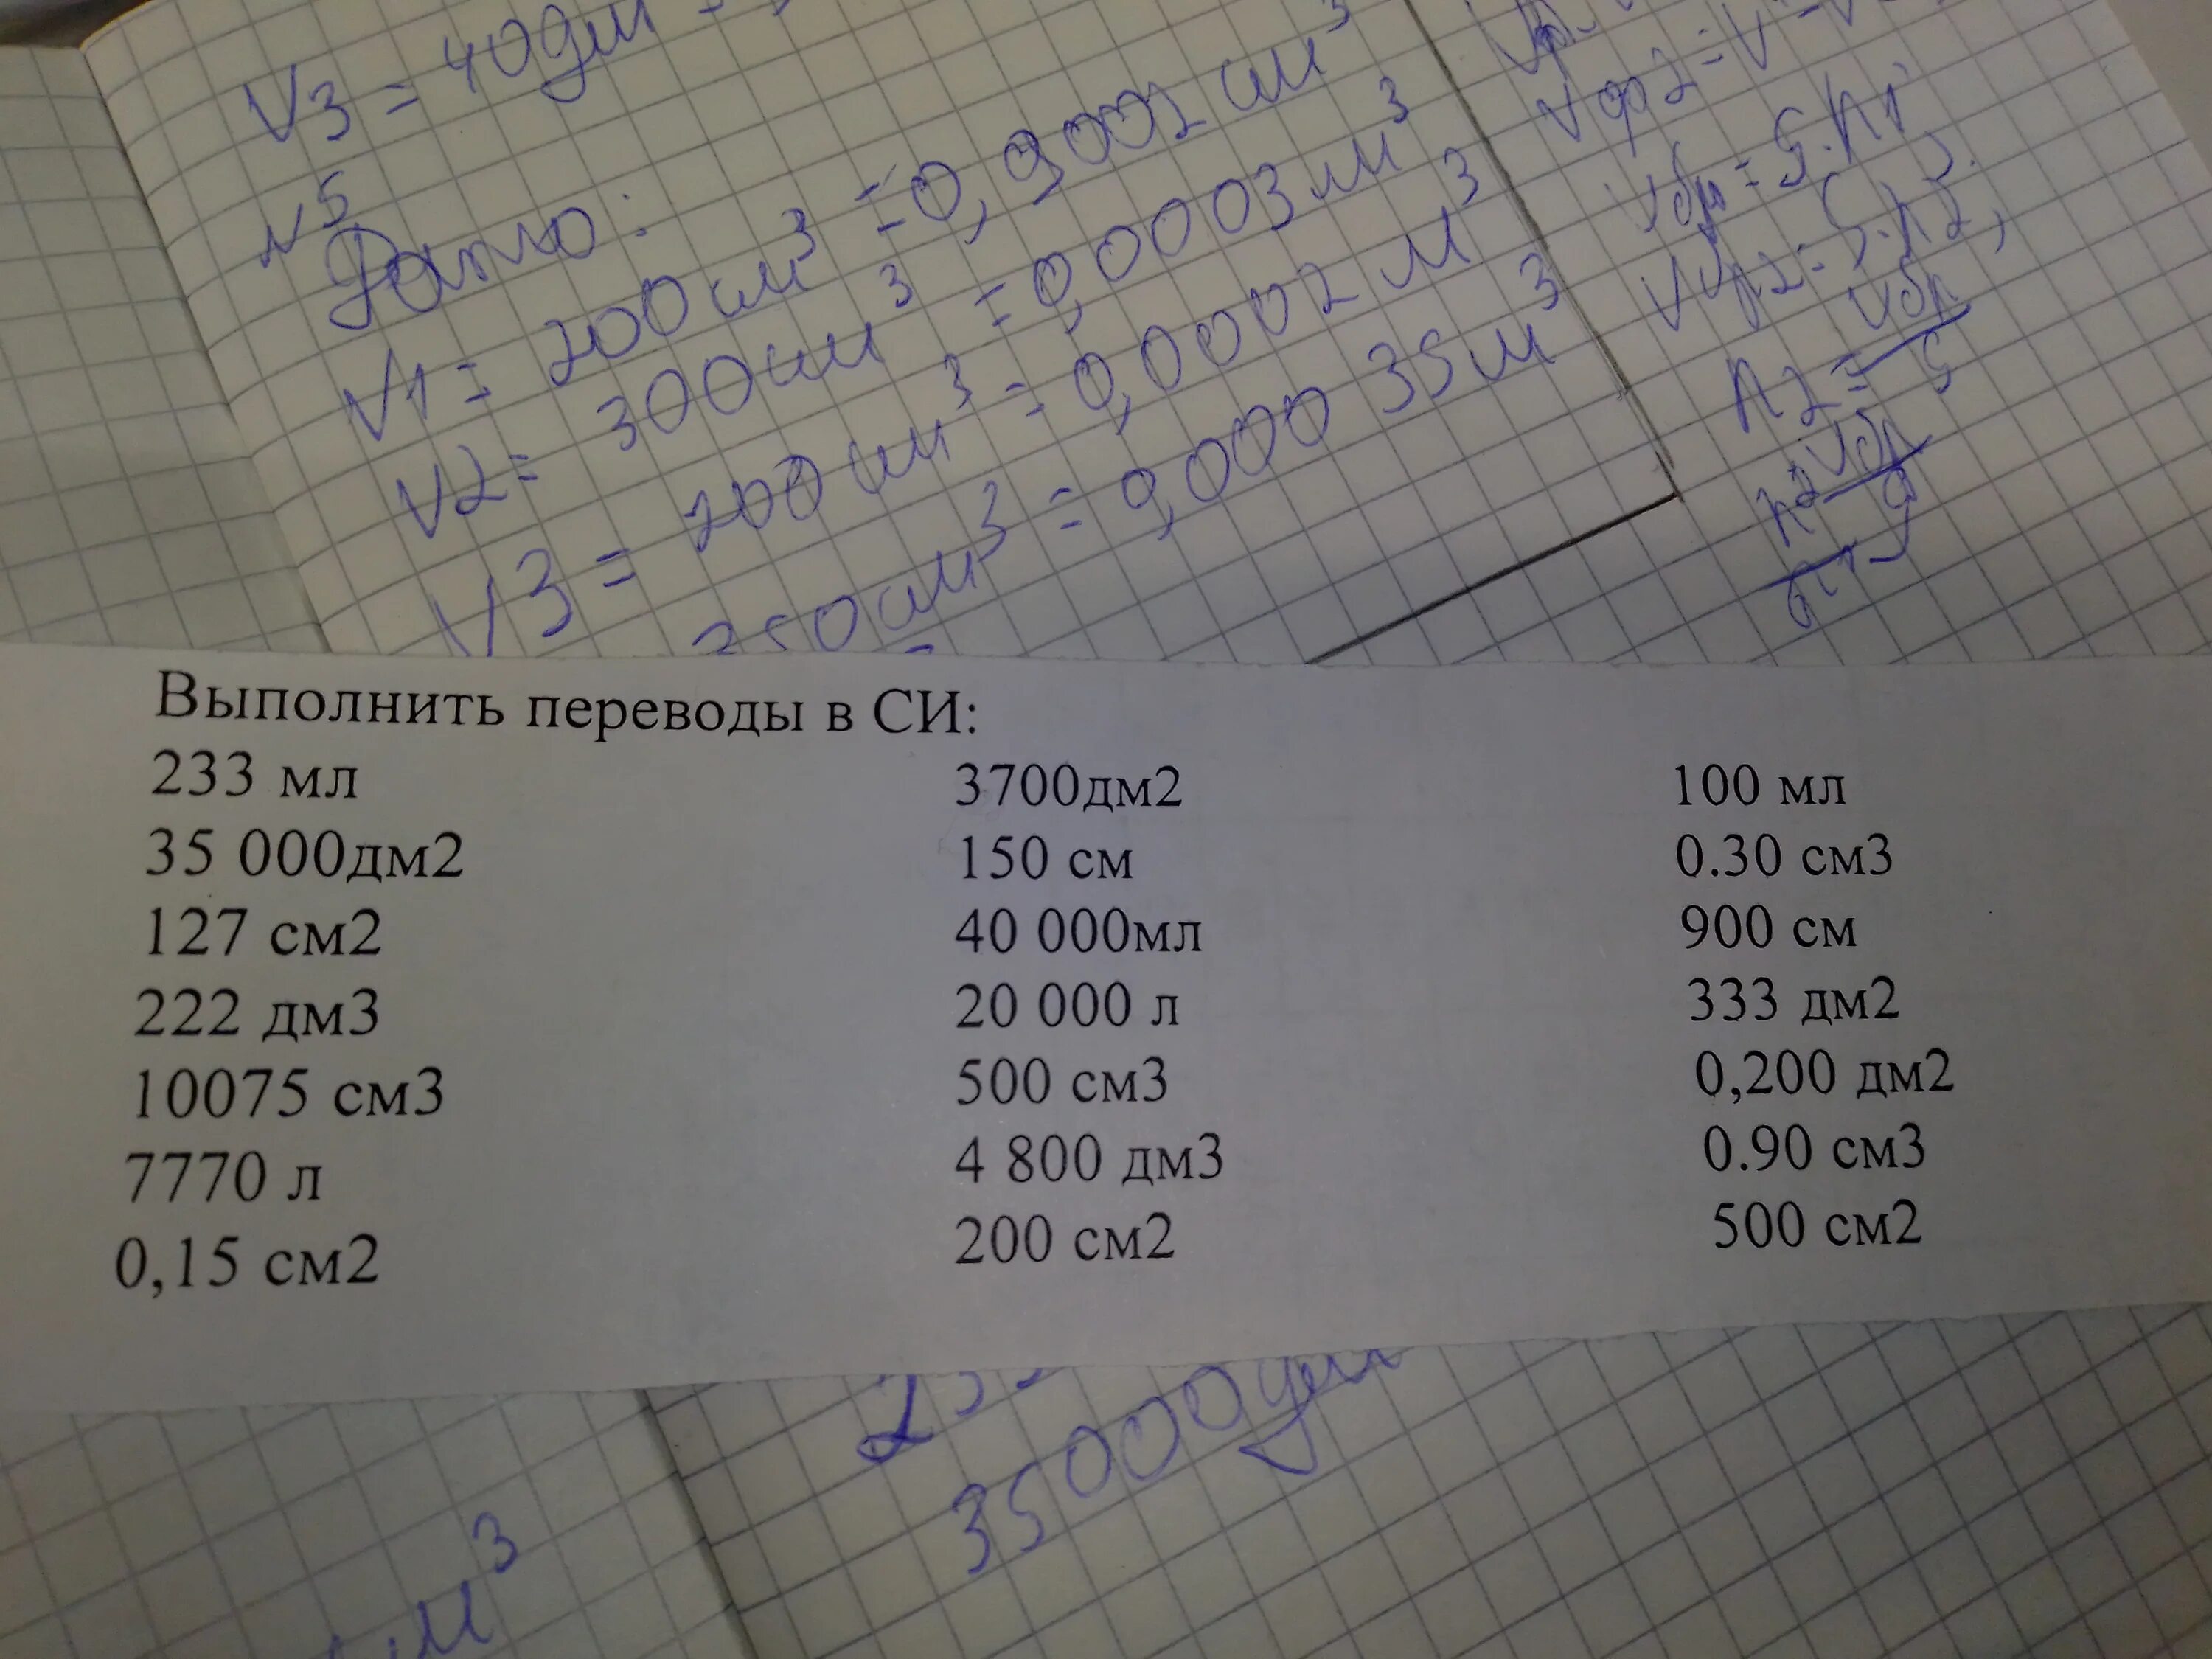 V3 = 40дм
N5
Дано:
V1 = 200 см³ = 0,0002 см³
V2 = 300 см³ = 0,0003 м³
V3 = 200 см³ = 0,0002 м³
350 см³ = 0,000 35 м³
Vбр = S·h1
h2 = Vбр / S
Выполнить переводы в СИ:
233 мл
35 000дм2
127 см2
222 дм3
10075 см3
7770 л
0,15 см2
3700дм2
150 см
40 000мл
20 000 л
500 см3
4 800 дм3
200 см2
100 мл
0.30 см3
900 см
333 дм2
0,200 дм2
0.90 см3
500 см2
35000дм
м³